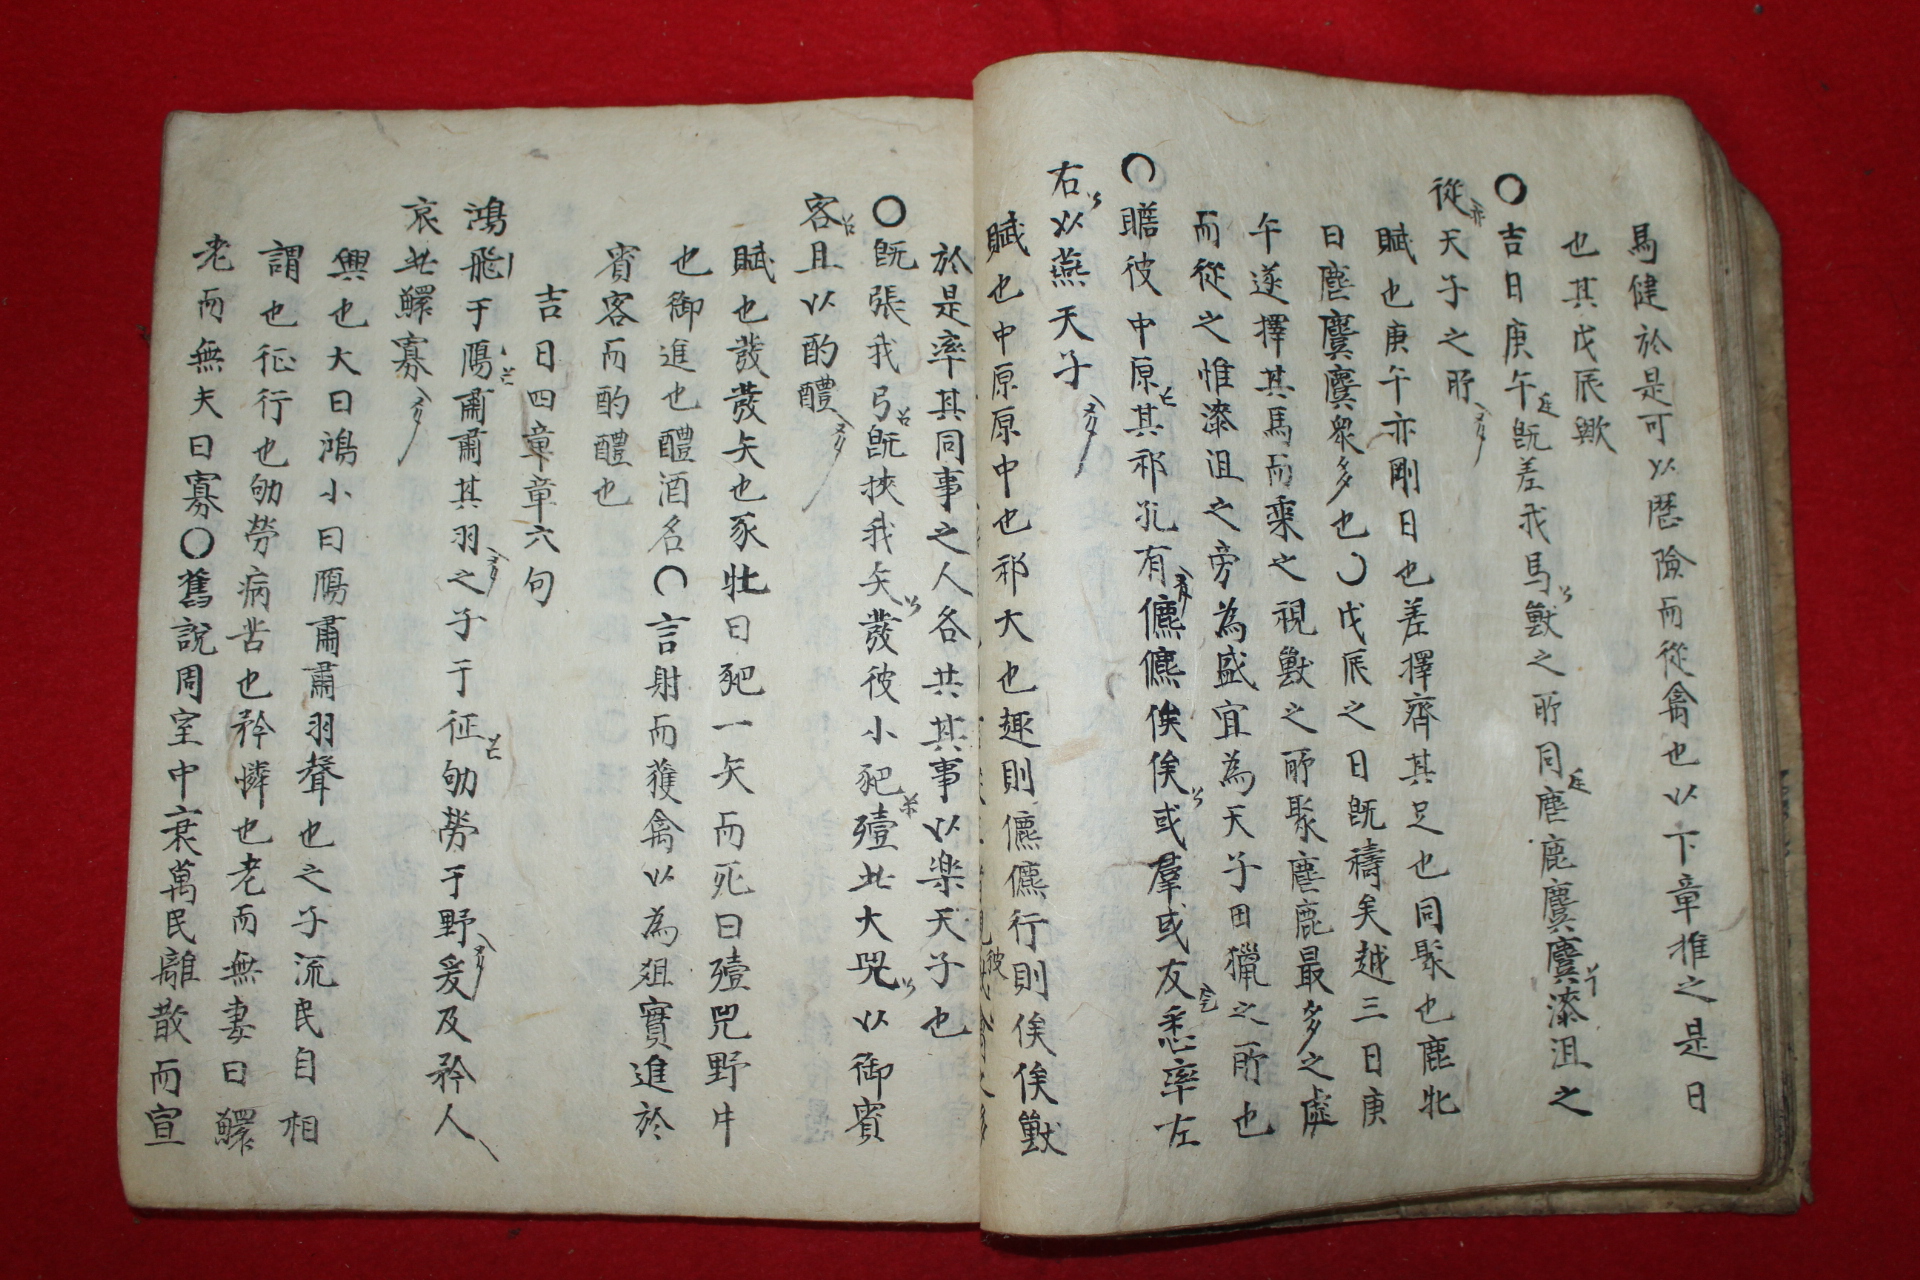 馬健於是可以歷險而從禽也以下章推之是日
也其戊辰歟
○吉日庚午旣差我馬獸之所同麀鹿麌麌漆沮之
從天子之所
賦也庚午亦剛日也差擇齊其足也同聚也鹿牝
曰麀麌麌衆多也○戊辰之日旣禱矣越三日庚
午遂擇其馬而乘之視獸之所聚麀鹿最多之處
而從之惟漆沮之旁為盛宜為天子田獵之所也
○瞻彼中原其祁孔有儦儦俟俟或羣或友悉率左
右以燕天子
賦也中原原中也祁大也趣則儦儦行則俟俟獸
於是率其同事之人各共其事以楽天子也
○旣張我弓旣挾我矢發彼小豝殪此大兕以御賓
客且以酌醴
賦也發發矢也豕牡曰豝一矢而死曰殪兕野牛
也御進也醴酒名○言射而獲禽以為俎實進於
賓客而酌醴也
吉日四章章六句
鴻飛于鴈肅肅其羽之子于征劬勞于野爰及矜人
哀此鰥寡
興也大曰鴻小曰鴈肅肅羽聲也之子流民自相
謂也征行也劬勞病苦也矜憐也老而無妻曰鰥
老而無夫曰寡○舊說周室中衰萬民離散而宣